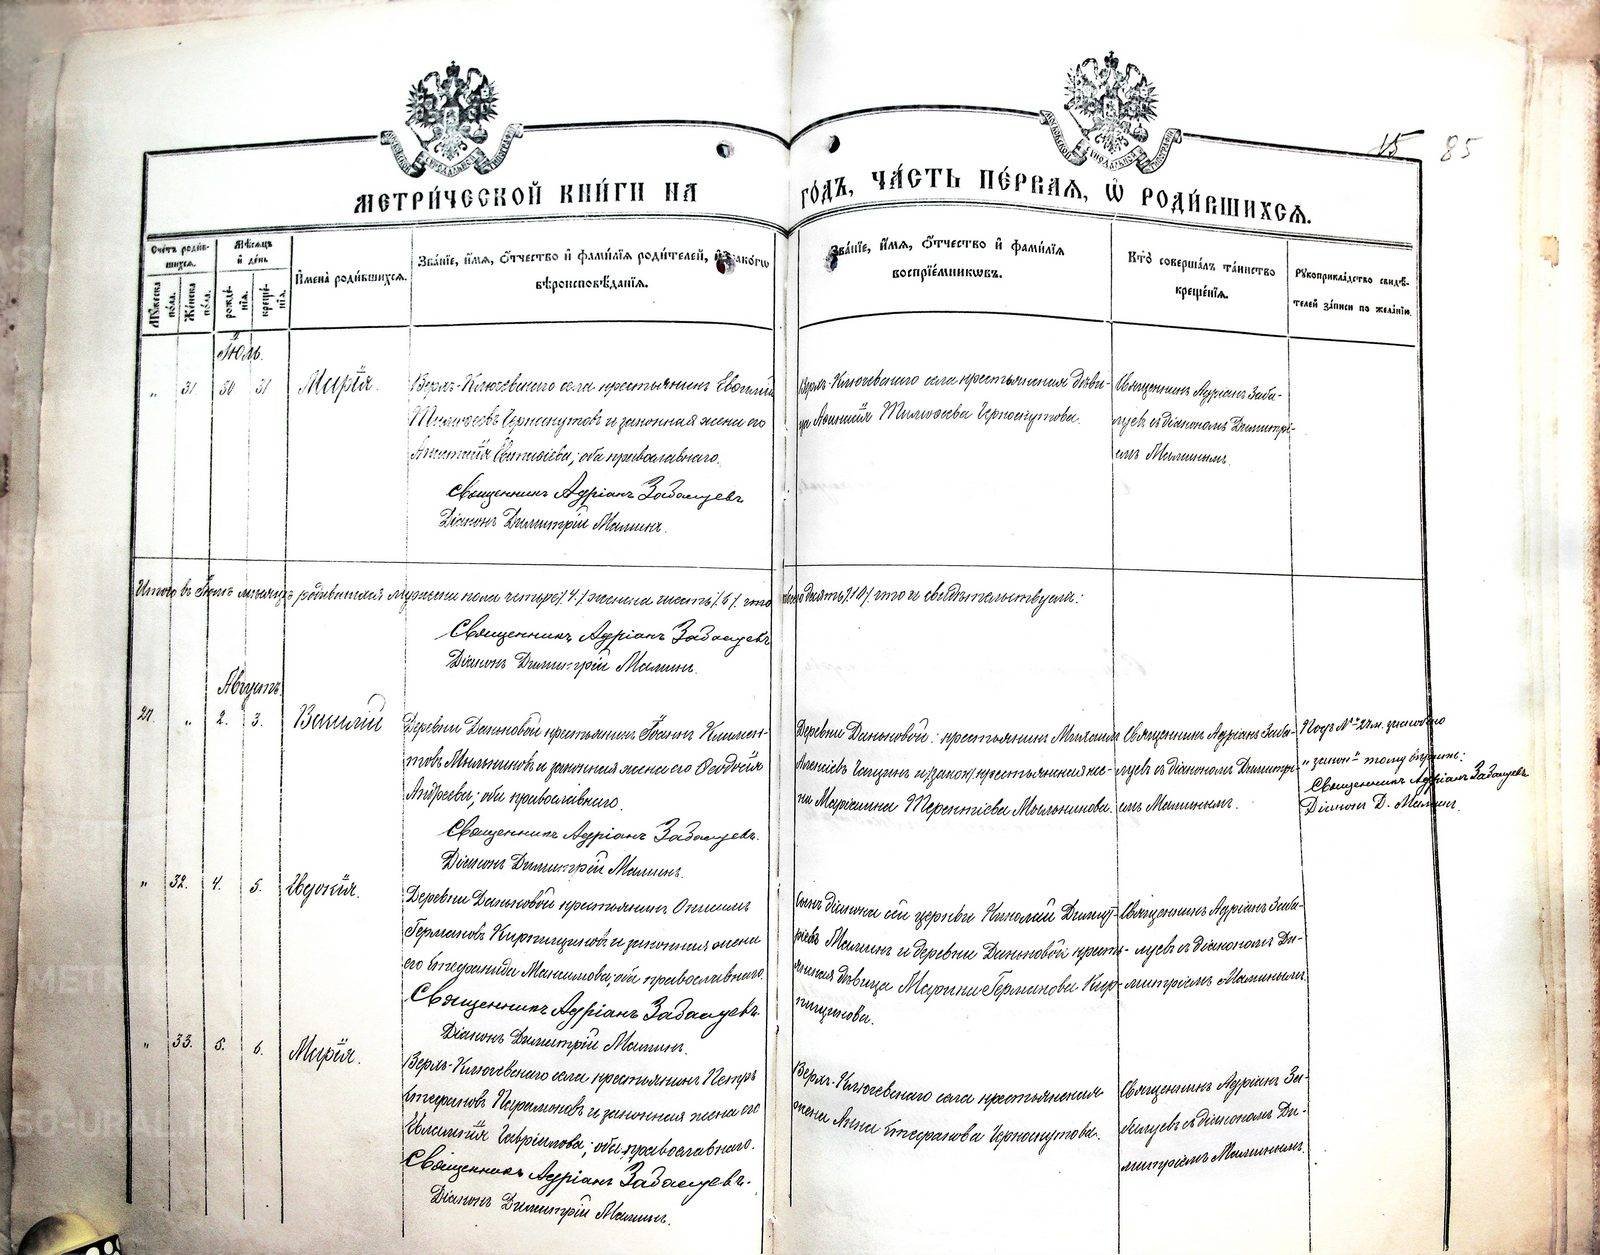 15 85
МЕТРИ́ЧЕСКОЙ КНИ́ГИ НА ГО́ДЪ, ЧА́СТЬ ПЕ́РВАЯ, Ѡ РОДИ́ВШИХСЯ.
Сче́тъ роди́в-
шихся.
Му́жеска по́ла.
Же́нска по́ла.
Мѣ́сяцъ
и де́нь
рожде́-
нія.
креще́-
нія.
Имена̀ роди́вшихся.
Зва́ніе, и́мя, о́тчество и фами́лія роди́телей, и како́гѡ
вѣроисповѣ́данія.
Зва́ніе, и́мя, о́тчество и фами́лія
воспріе́мникѡвъ.
Кто̀ соверша́лъ та́инство
креще́нія.
Рукоприкла́дство свидѣ́-
телей за́писи по жела́нію.
Іюль.
" 31 30 31 Марія.
Верхъ-Ключевскаго села крестьянинъ Евгений
Тимоѳеевъ Черноскутовъ и законная жена его
оба православнаго.
Священникъ Адріанъ Забалуевъ
Діаконъ Димитрій Малинъ.
Верхъ-Ключевскаго села крестьянская дѣви-
ца Тимоѳеева Черноскутова.
Священникъ Адріанъ Заба-
луевъ съ діакономъ Димитрі-
емъ Малинымъ.
Итого въ Іюлѣ мѣсяцѣ родившихся мужеска пола четыре /4/ женска шесть /6/ десять /10/ что и свидѣтельствуемъ:
Священникъ Адріанъ Забалуевъ
Діаконъ Димитрій Малинъ.
Августъ.
" 2. 3. Василій
Деревни Даньковой крестьянинъ Іоаннъ Климен-
товъ Мыльниковъ и законная жена его Ѳеодосія
Андреева; оба православнаго.
Священникъ Адріанъ Забалуевъ.
Діаконъ Димитрій Малинъ.
Деревни Даньковой: крестьянинъ Михаилъ
Алексіевъ и крестьянская же-
на Терентіева Мыльникова.
Священникъ Адріанъ Заба-
луевъ съ діакономъ Димитрі-
емъ Малинымъ.
Подъ № 
тому вѣрить:
Священникъ Адріанъ Забалуевъ
Діаконъ Д. Малинъ.
" 32. 4. 5. Евдокія.
Деревни Даньковой крестьянинъ Онисимъ
Германовъ Кирпищиковъ и законная жена
его Степанида Максимова; оба православнаго.
Священникъ Адріанъ Забалуевъ.
Діаконъ Димитрій Малинъ.
Сынъ діакона сей церкви Николай Димит-
ріевъ Малинъ и деревни Даньковой кресть-
янская дѣвица Марина Германова Кир-
пищикова.
Священникъ Адріанъ Заба-
луевъ съ діакономъ Ди-
митріемъ Малинымъ.
" 33. 5. 6. Марія.
Верхъ-Ключевскаго села крестьянинъ Петръ
Стефановъ Парамоновъ и законная жена его
Гавріилова; оба православнаго.
Священникъ Адріанъ Забалуевъ.
Діаконъ Димитрій Малинъ.
Верхъ-Ключевскаго села крестьянская
жена Анна Стефанова Черноскутова.
Священникъ Адріанъ За-
балуевъ съ діакономъ Ди-
митріемъ Малинымъ.